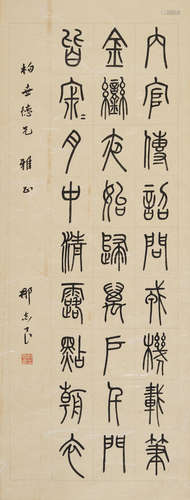 内官傳詔問戎機載筆
金鑾夜始歸萬戶千門
皆寂〻月中清露點朝衣
柏世德兄 雅正
那志良